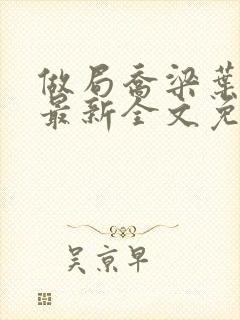 做局乔梁葉
最新全文免
吴京早